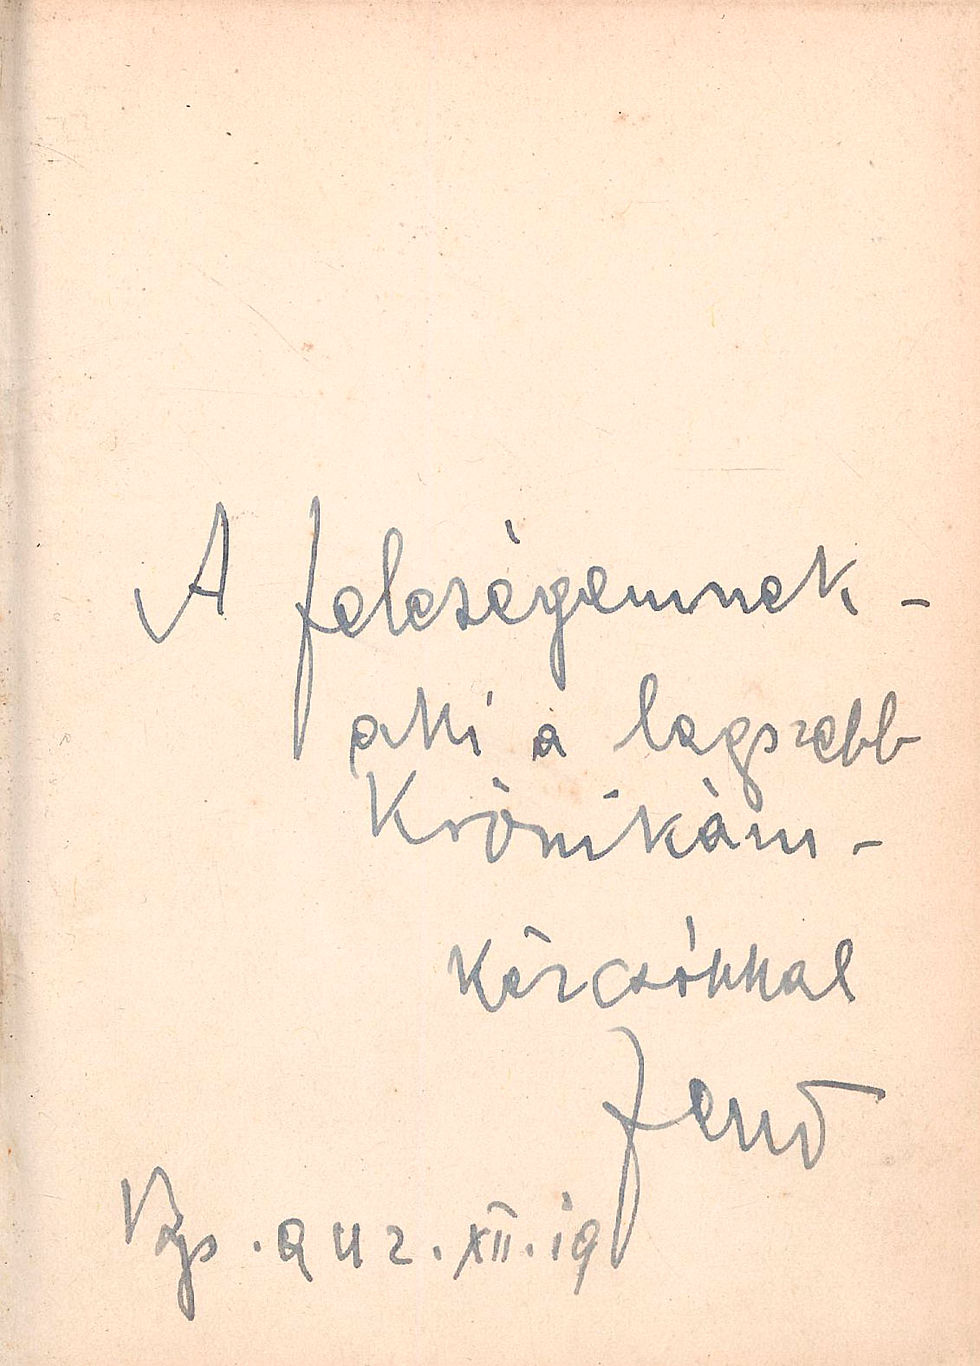 A feleségemnek -
aki a legszebb
Krónikám -
Kézcsókkal
Jenő
942. XII. 19